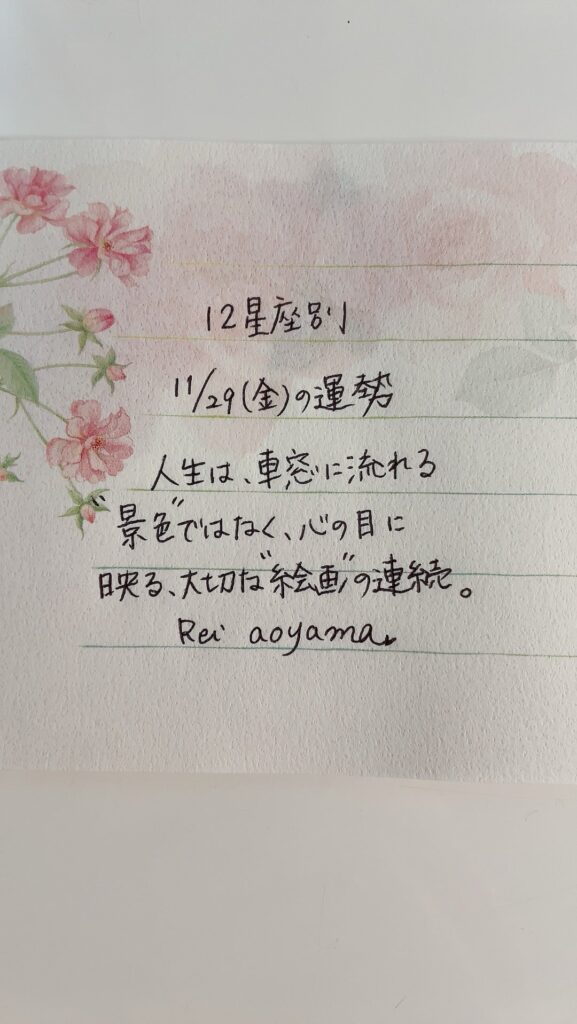 12星座別
11/29(金)の運勢
人生は、車窓に流れる
"景色"ではなく、心の目に
映る、大切な"絵画"の連続。
Rei aoyama